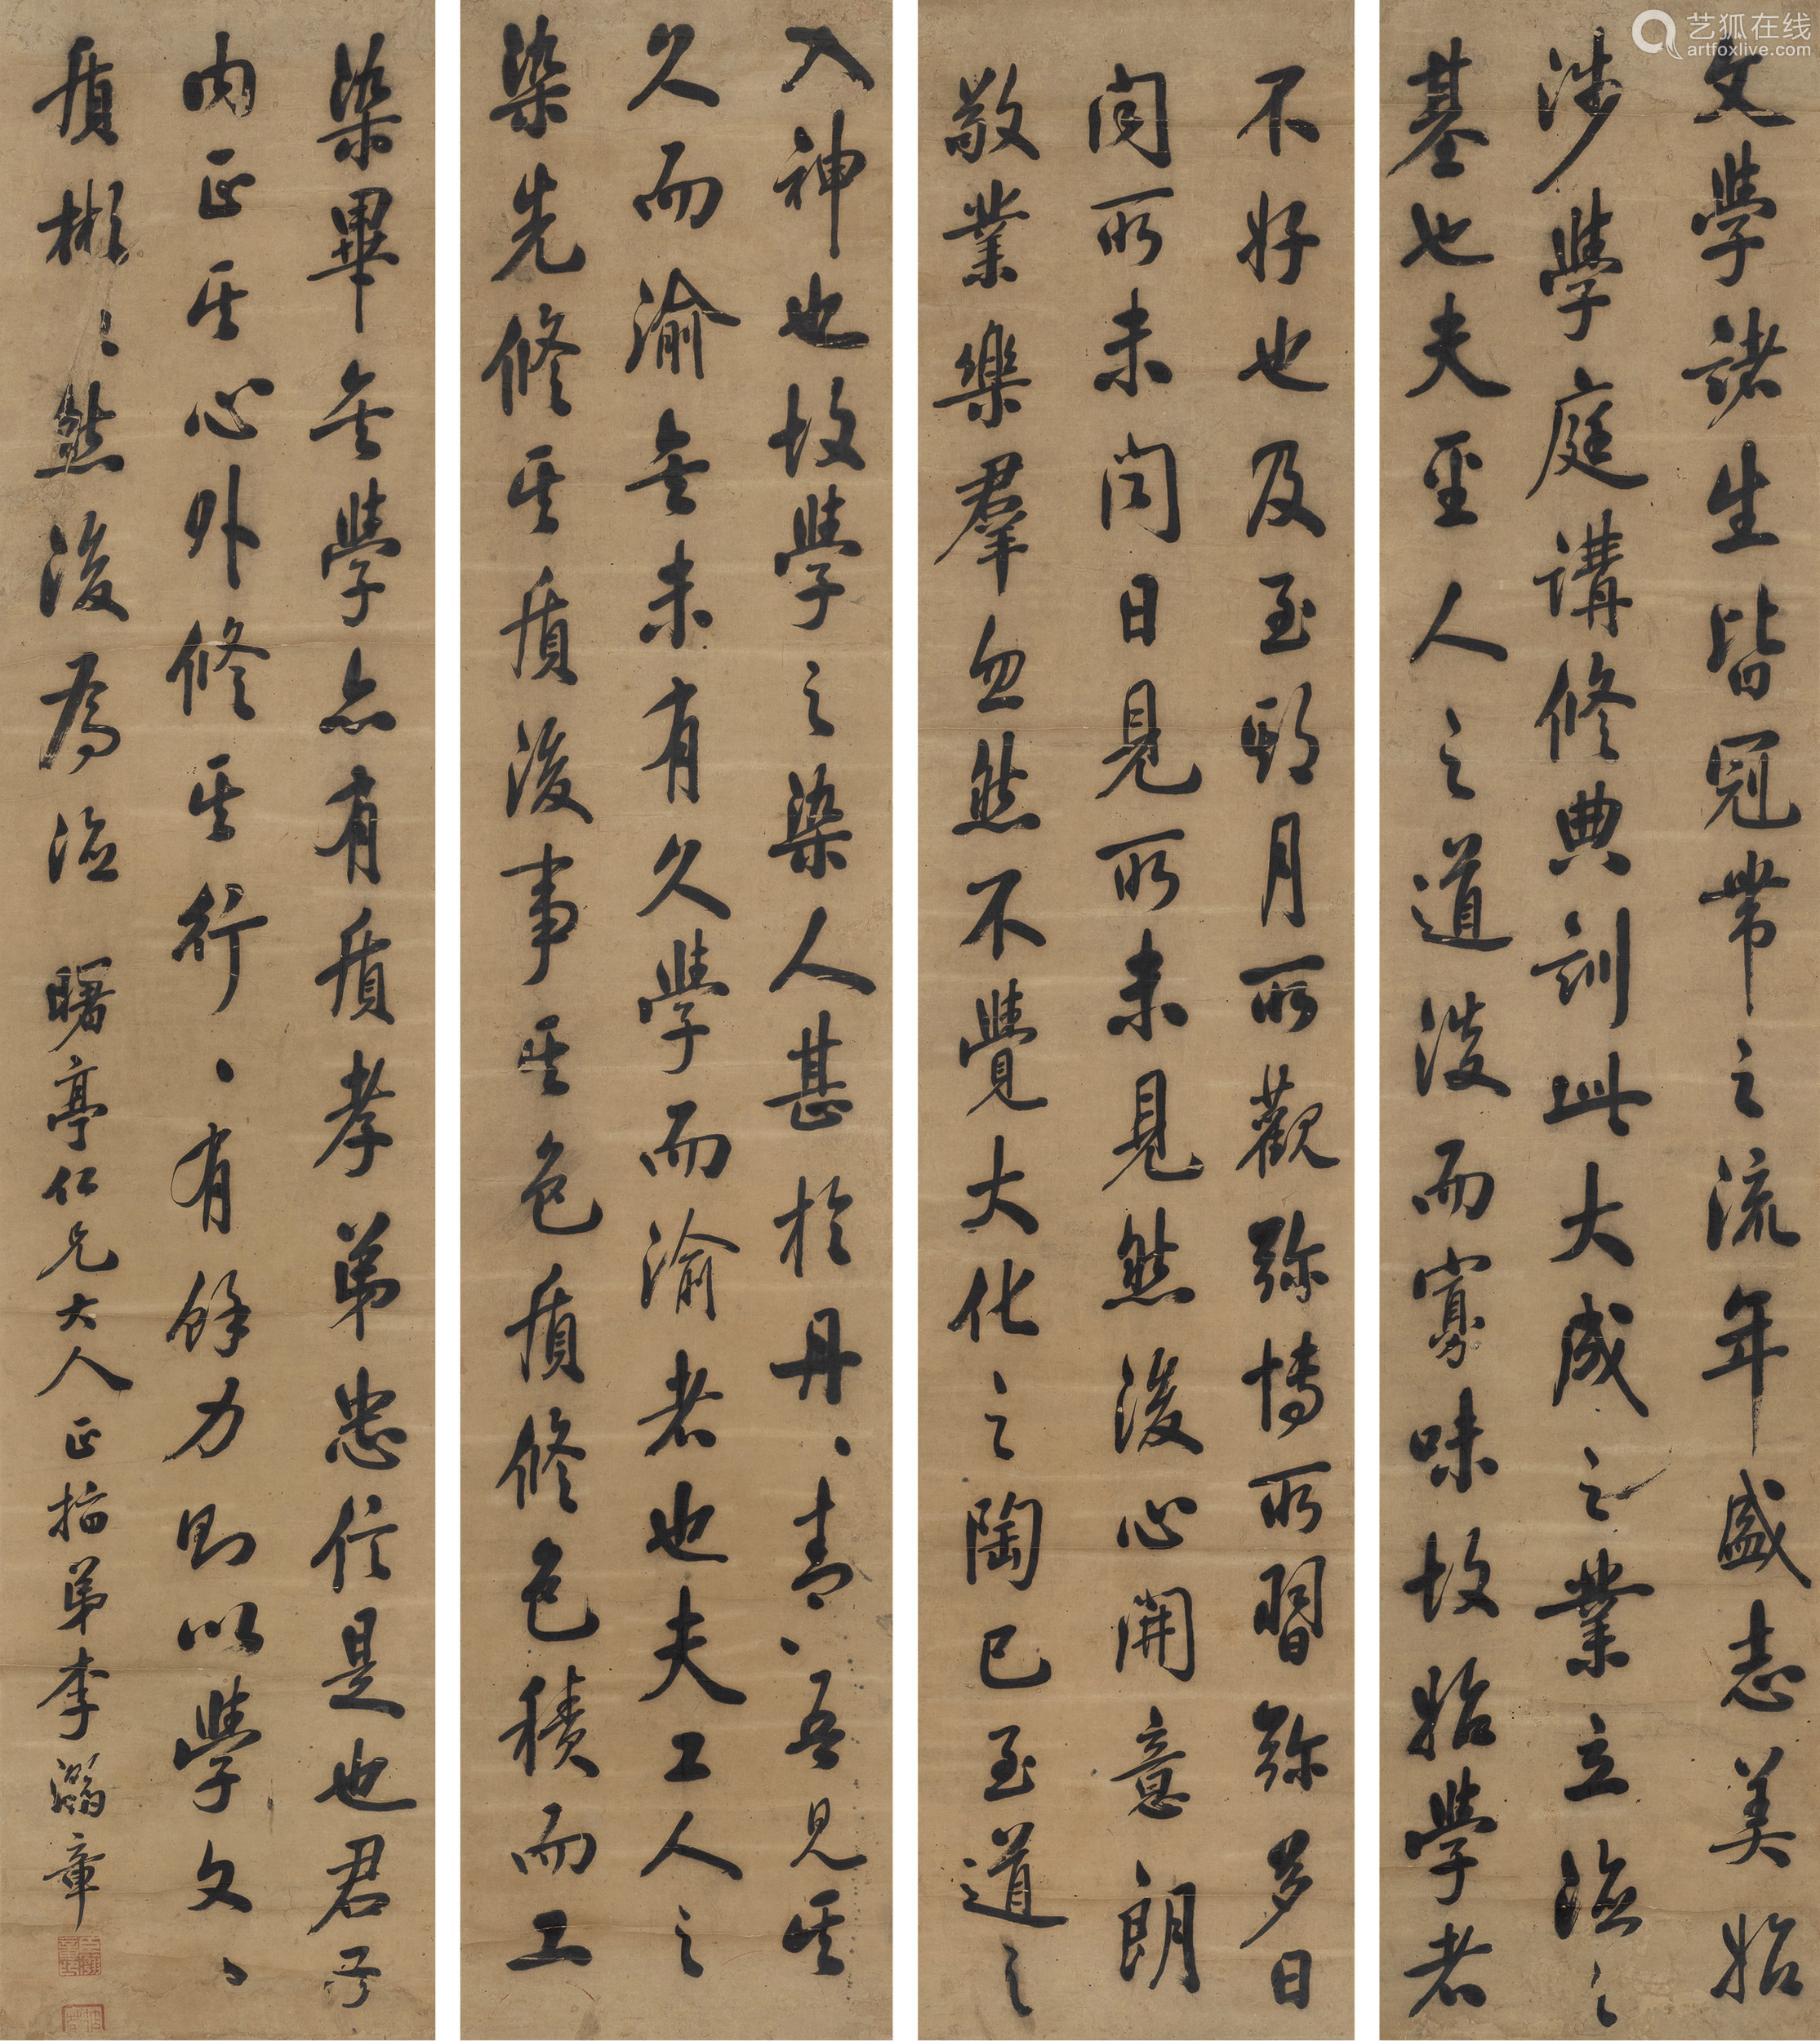 艺狐在线
artfoxlive.com
文學諸生皆冠帶之流年盛志美始
涉學庭講修典訓此大成之業立德之
基也夫聖人之道淡而寡味故始學者
不好也及至期月所觀弥博所習弥多日
聞所未聞日見所未見然後心開意朗
敬業樂羣忽然不覺大化之陶已至道之
入神也故學之染人甚於丹、青、吾見其
久而渝矣未有久學而渝者也夫工人之
染先修其質後事其色質修色積而工
染畢矣學亦有質孝弟忠信是也君子
内正其心外修其行、有餘力則以學文、
質彬、然後為德 曙亭仁兄大人正 拙弟李瀚章